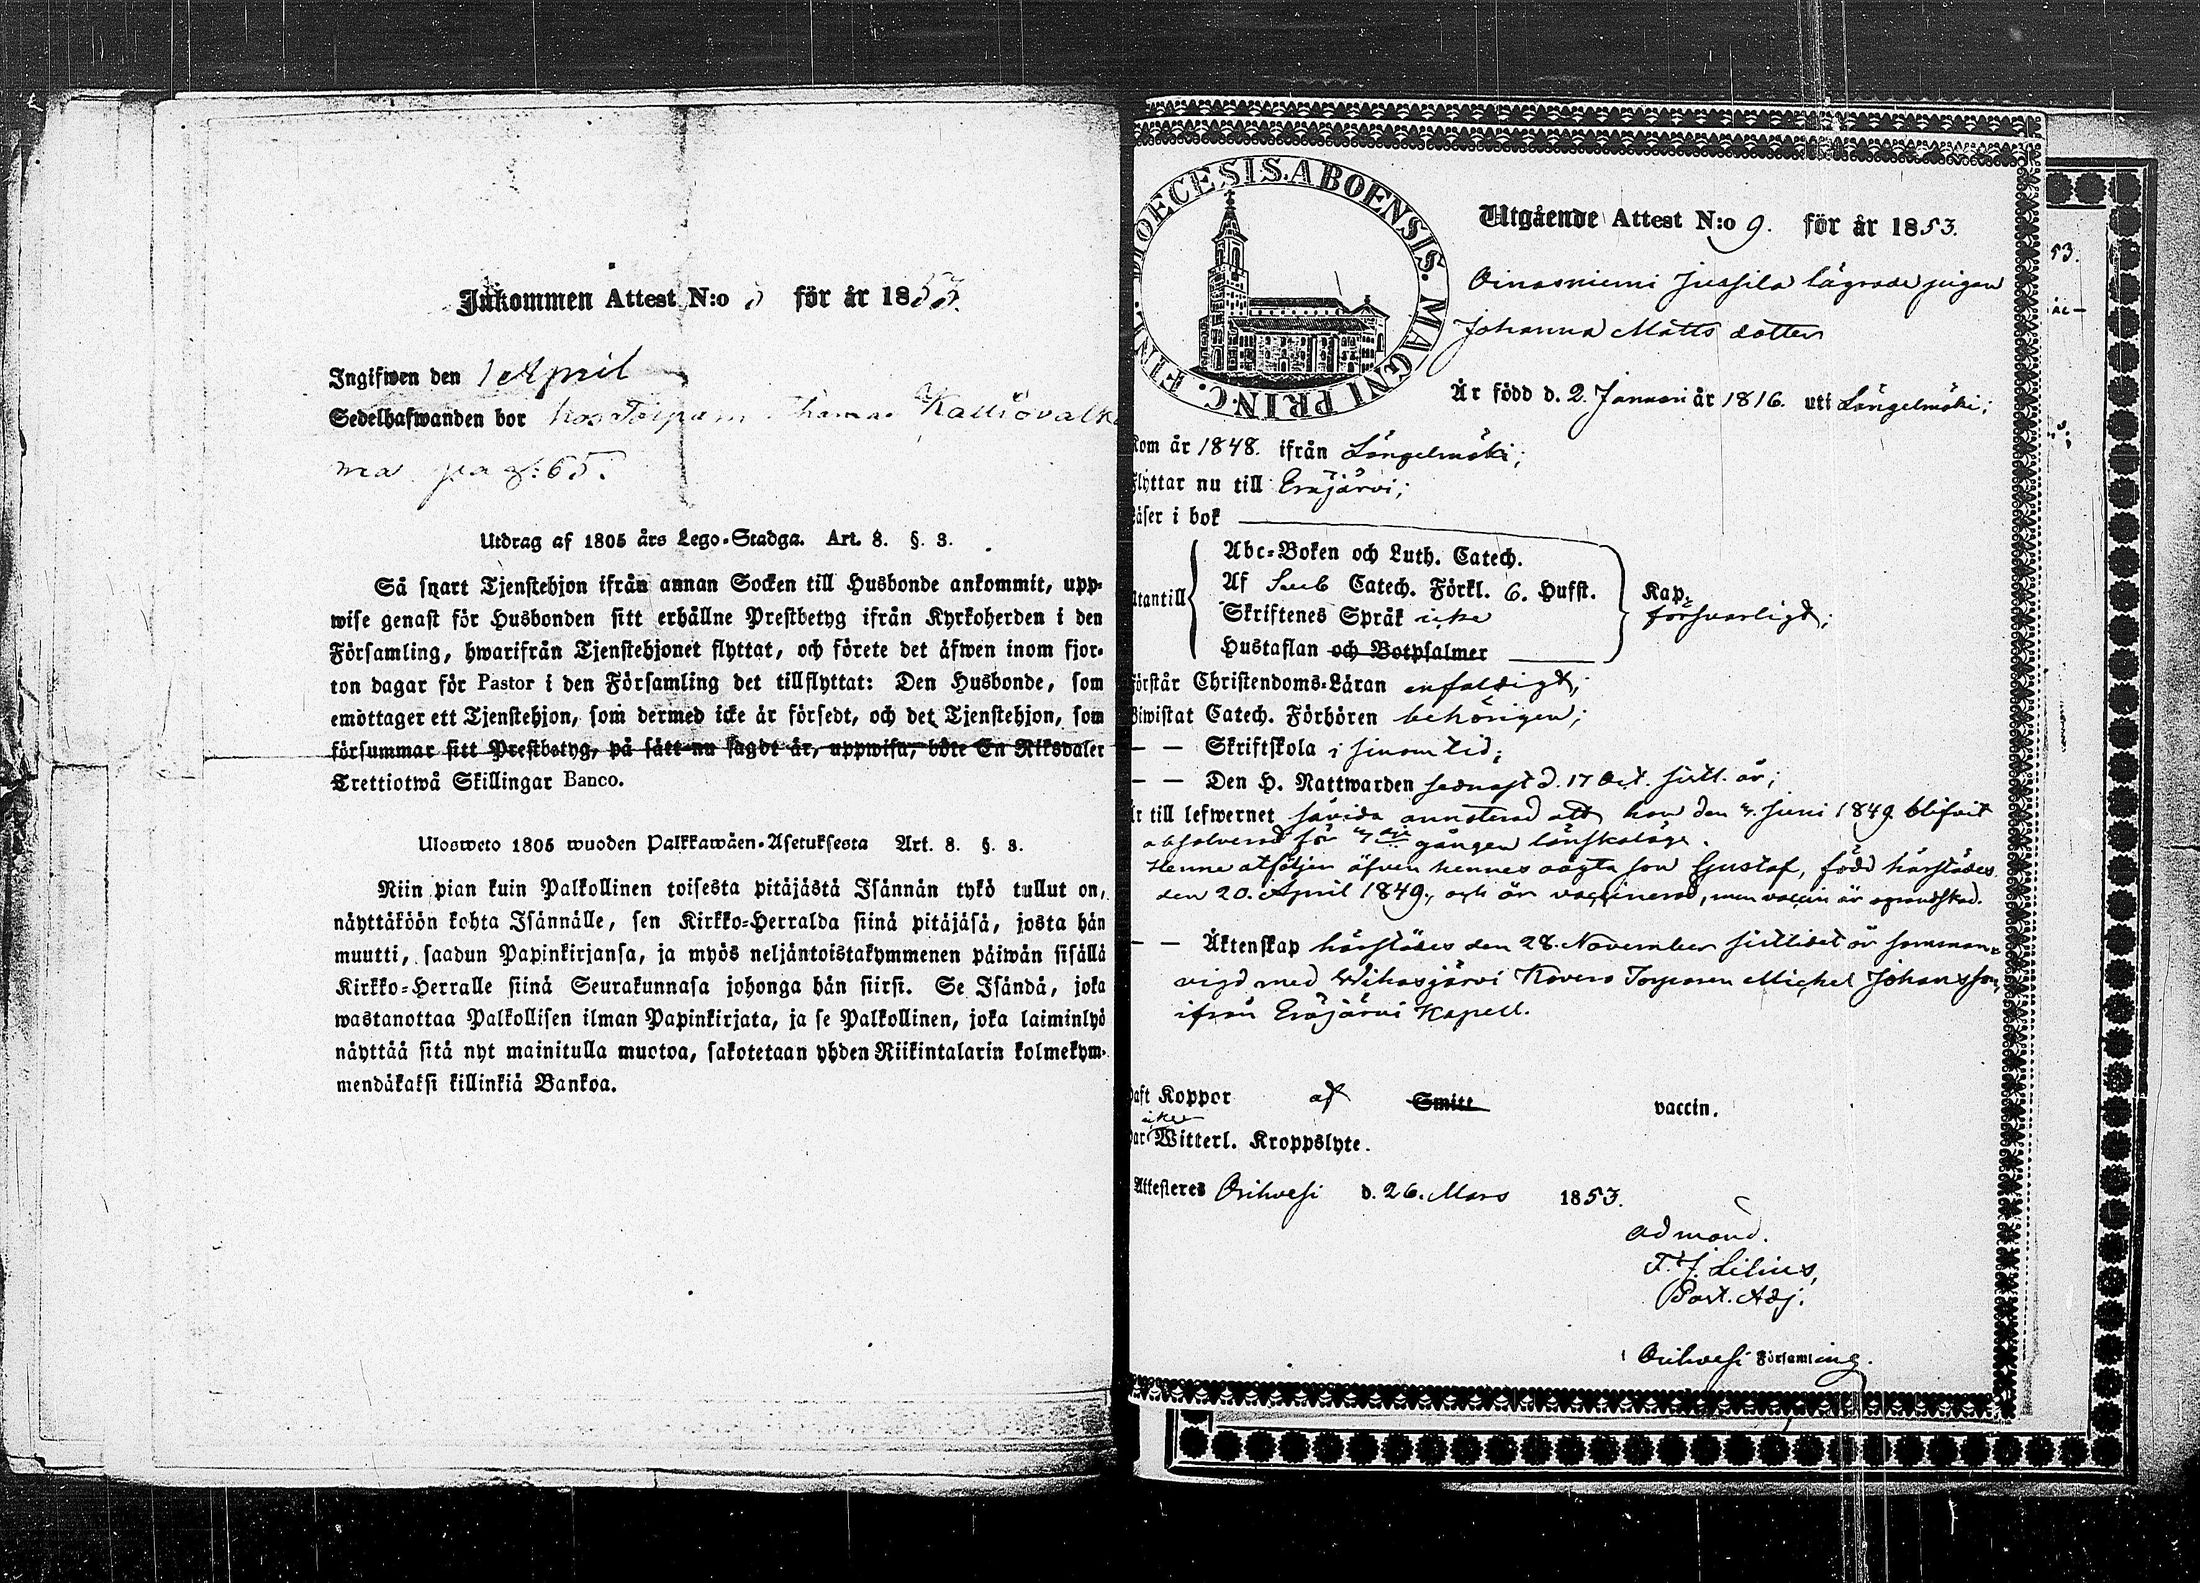 Inkommen Attest N:o för år 1853.
Ingifwen den 1 April
Sedelhafwanden bor hos Torparn Thomas Kalliovalk
ma pag: 65.
Utdrag af 1805 års Lego-Stadga. Art. 8. §. 3.
Så snart Tjenstehjon ifrån annan Socken till Husbonde ankommit, upp-
wise genast för Husbonden sitt erhållne Prestbetyg ifrån Kyrkoherden i den
Församling, hwarifrån Tjenstehjonet flyttat, och förete det äfwen inom fjor-
ton dagar för Pastor i den Församling det tillflyttat: Den Husbonde, som
emottager ett Tjenstehjon, som dermed icke är försedt, och det Tjenstehjon, som
försummar sitt Prestbetyg, på sätt nu sagdt är, uppwisa, böte En Riksdaler
Trettiotwå Skillingar Banco.
Ulosweto 1805 wuoden Palkkawäen-Asetuksesta Art. 8. §. 3.
Niin pian kuin Palkollinen toisesta pitäjästä Isännän tykö tullut on,
näyttäköön kohta Isännälle, sen Kirkko-Herralda siinä pitäjäsä, josta hän
muutti, saadun Papinkirjansa, ja myös neljäntoistakymmenen päiwän sisällä
Kirkko-Herralle siinä Seurakunnasa johonga hän siirsi. Se Isändä, joka
wastanottaa Palkollisen ilman Papinkirjata, ja se Palkollinen, joka laiminlyö
näyttää sitä nyt mainitulla muotoa, sakotetaan yhden Riikintalarin kolmekym-
mendäkaksi killinkiä Bankoa.
DIOECESIS. ABOENSIS. MAGNI PRINC. FIN
Utgående Attest N:o 9. för år 1853.
Oinasniemi Jussila lägrade pigan
Johanna Matts dotter
Är född d. 2 Januari år 1816. uti Längelmäki;
kom år 1848. ifrån Längelmäki;
Flyttar nu till Eräjärvi;
Läser i bok
Abc-Boken och Luth. Catech.
Af Sveb Catech. Förkl. 6. Hufst.
Utantill Skriftenes Språk icke Kap. försvarligt;
Hustaflan och Botpsalmer
Förstår Christendoms-Läran enfaldigt;
Biwistat Catech. Förhören behörigen;
— — Skriftskola i sinom tid;
— — Den H. Nattwarden sednast d. 17 Oct. sistl. år;
Är till lefwernet såvida annoterad att hon den 4. Juni 1849 blifvit
absolverad för gången lönskaläge.
Henne åtföljer äfven hennes oägta son Gustaf, född härstädes
den 20. April 1849., och är vaccinerad, men vaccin är
— — Äktenskap härstädes den 28. November sistlidet år samman-
vigd med Wihasjärvi Kovero Torparen Michel Johansson,
ifrån Eräjärvi Kapell.
haft Koppor af Smitt vaccin.
har icke Witterl. Kroppslyte.
Attesteres Orihvesi d. 26. Mars 1853.
ad mand.
F. J. Lilius,
Past. Adj.
i Orihvesi Församling.
53.